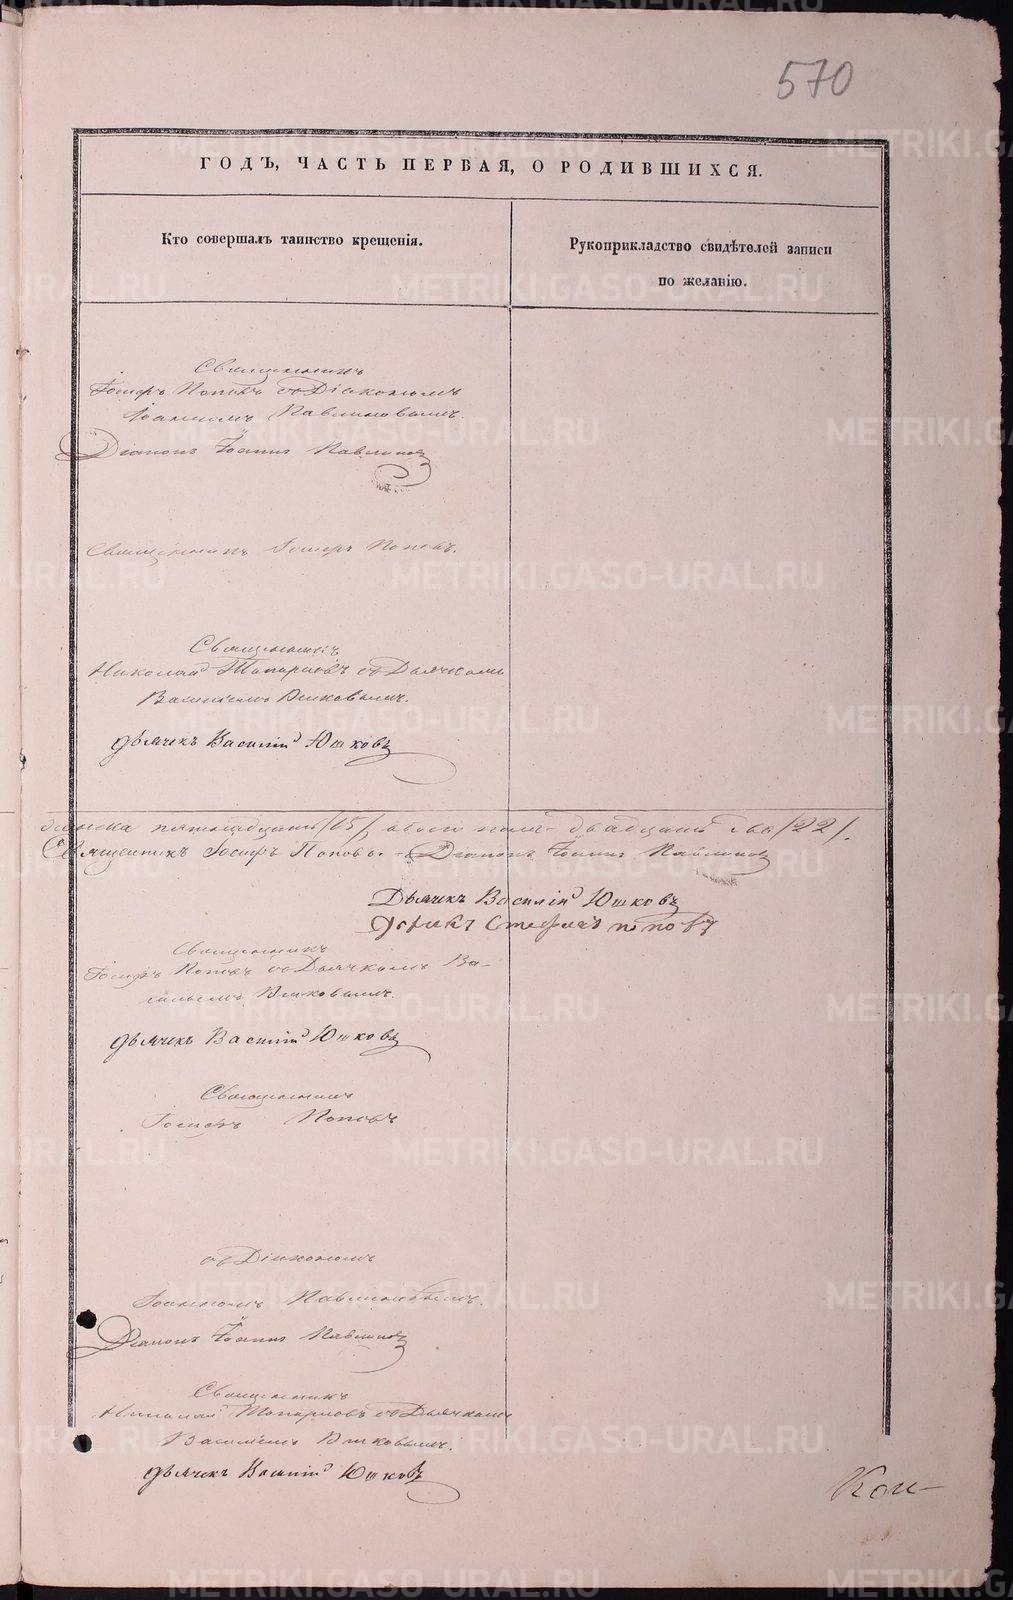 570
ГОДЪ, ЧАСТЬ ПЕРВАЯ, О РОДИВШИХСЯ.
Кто совершалъ таинство крещенія.
Рукоприкладство свидѣтелей записи
по желанію.
Священникъ
Іосифъ Поповъ съ Діакономъ
Іоанномъ Павлиновымъ.
Діаконъ Іоаннъ Павлинов
Священникъ Іосифъ Поповъ.
Священникъ
Николай Топорковъ съ Дьячкомъ
Василіемъ Юшковымъ.
Дьячекъ Василій Юшковъ
пятнадцать /15/, обоего пола - двадцать два /22/.
Священникъ Іосифъ Поповъ. - Діаконъ Іоаннъ Павлинов
Дьячекъ Василій Юшковъ
Стефанъ Попов
Священникъ
Іосифъ Поповъ съ Дьячкомъ Ва-
сильемъ Юшковымъ.
Дьячекъ Василій Юшковъ
Священникъ
Іосифъ Поповъ
съ Діакономъ
Іоанномъ Павлиновымъ.
Діаконъ Іоаннъ Павлинов
Священникъ
Николай Топорковъ съ Дьячкомъ
Василіемъ Юшковымъ.
Дьячекъ Василій Юшковъ
METRIKI.GASO-URAL.RU